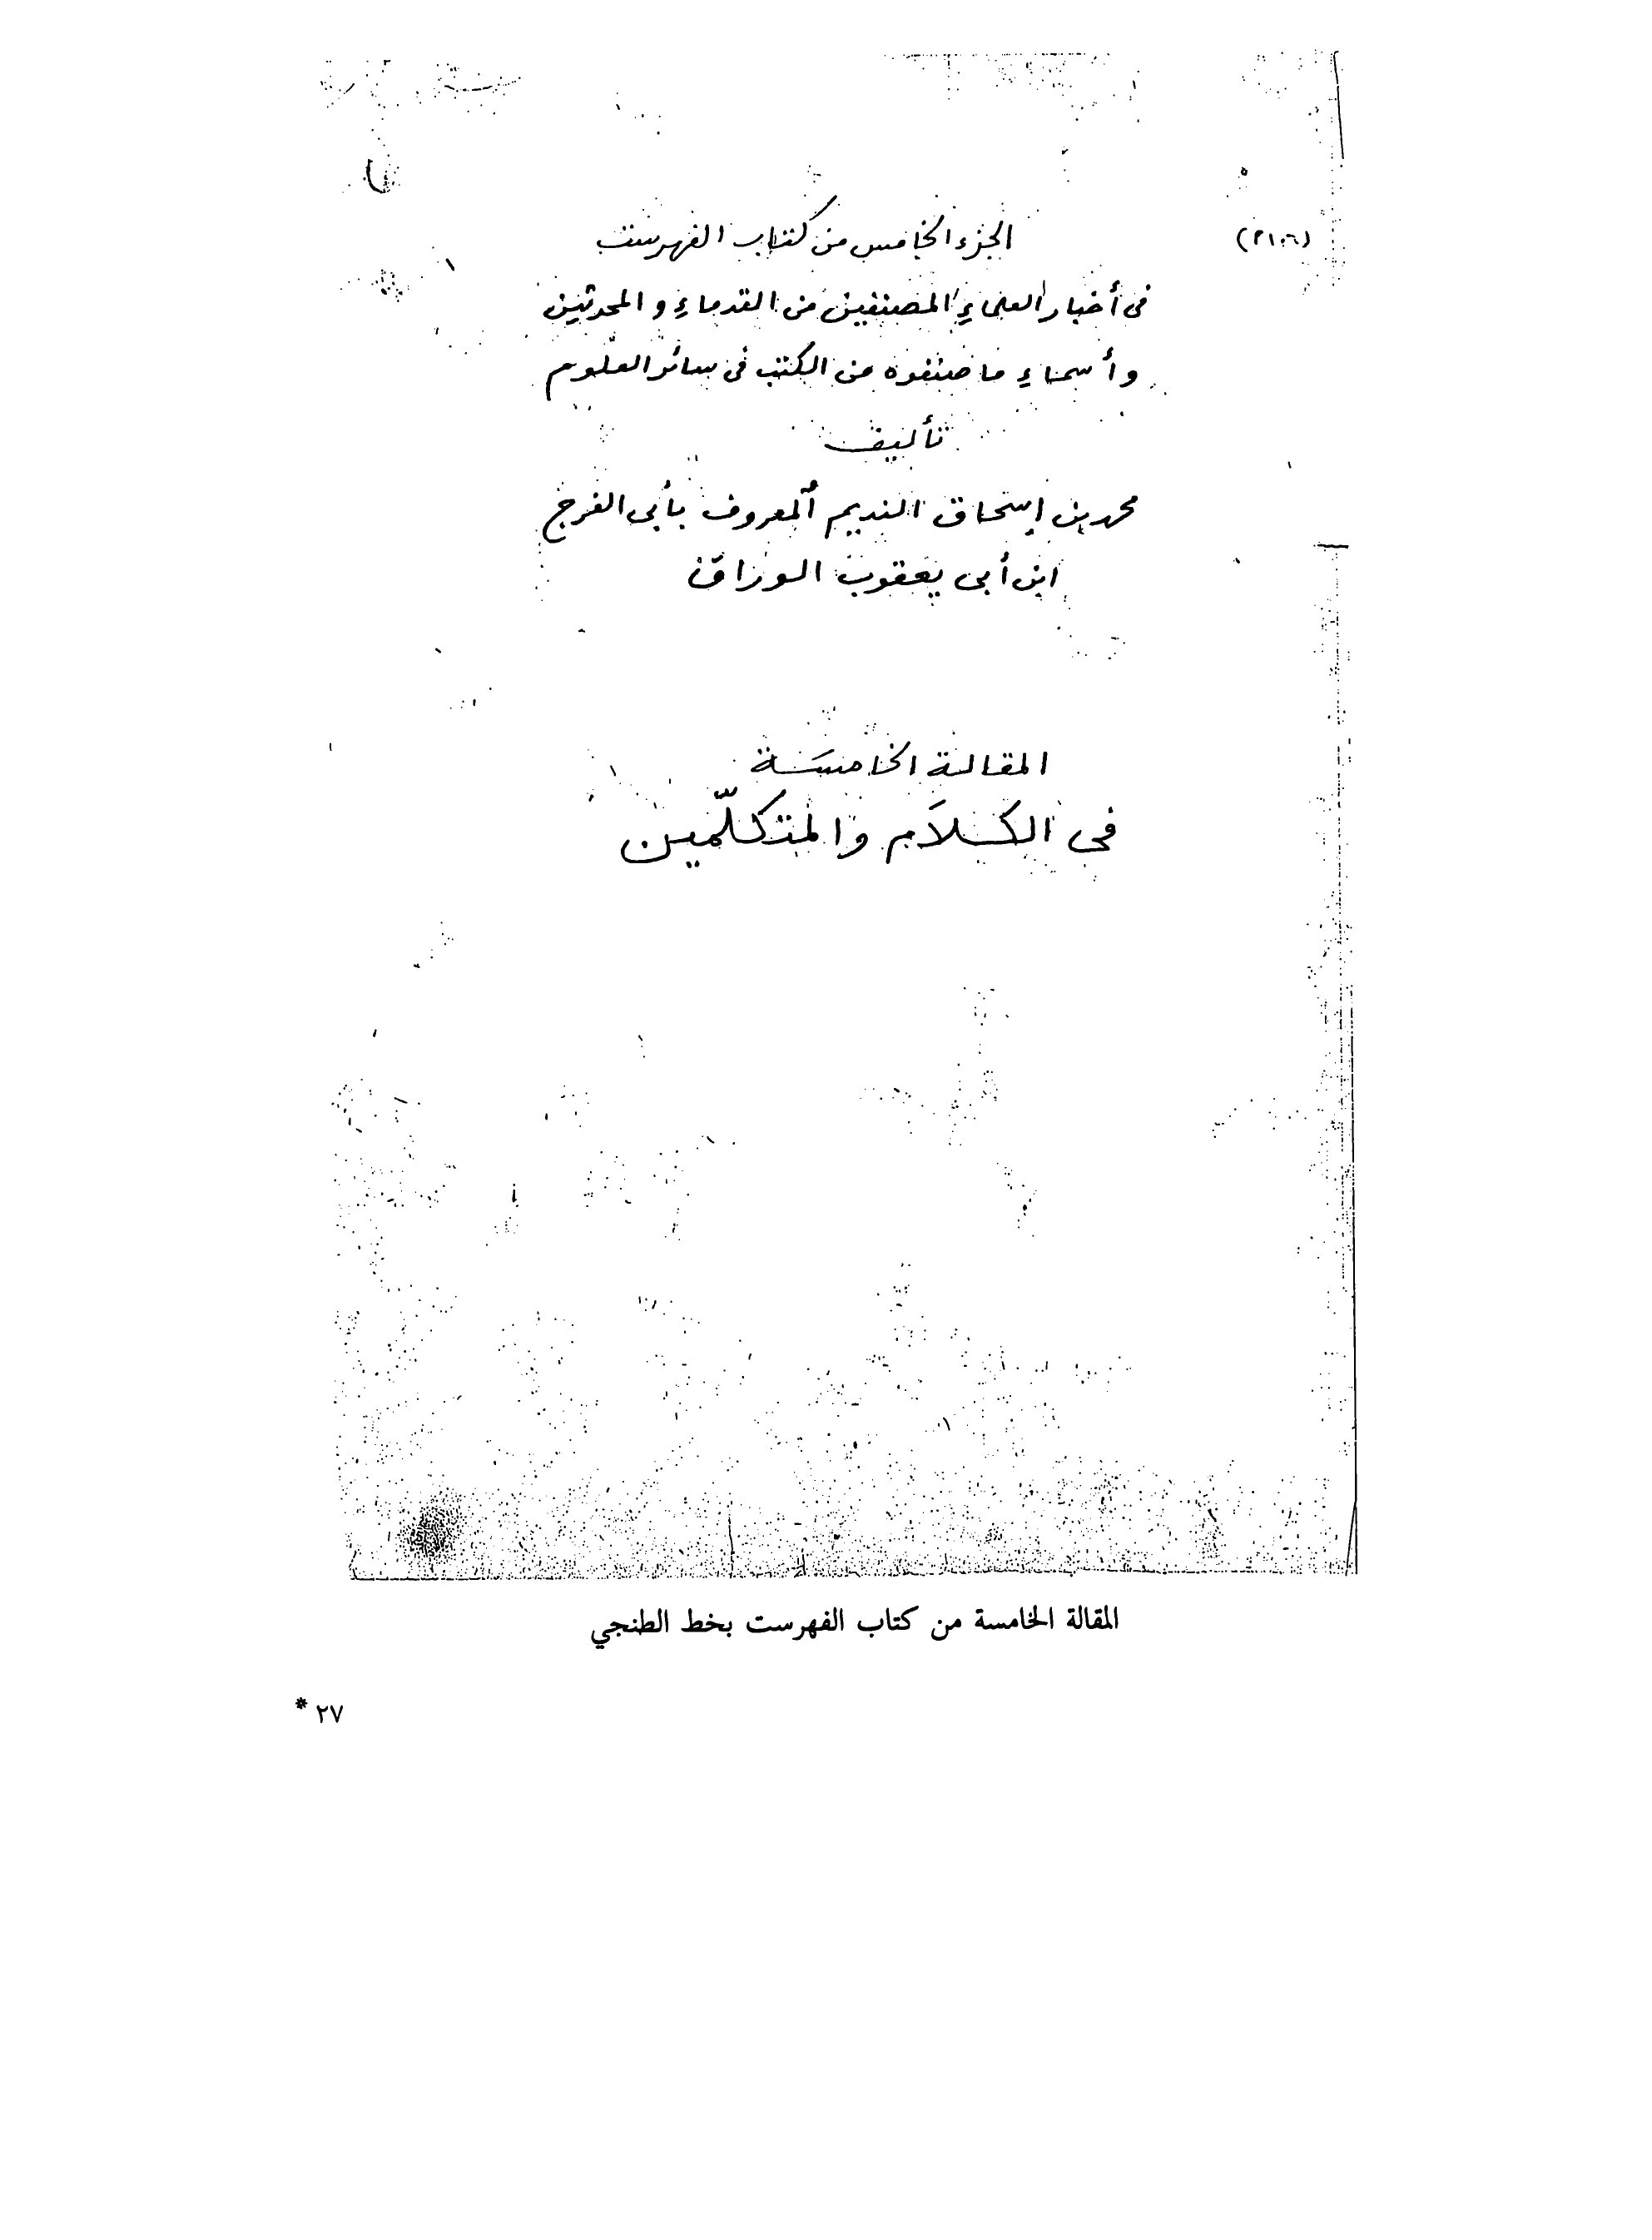 الجزء الخامس من كتاب الفهرست
في أخبار العلماءِ المصنفين من القدماءِ والمحدثين
وأسماءِ ما صنّفوه من الكتب في سائر العلوم
تأليف
محمد بن إسحاق النديم المعروف بأبى الفرج
ابن أبى يعقوب الوراق
المقالة الخامسَة
فى الكلاَم والمتكلّمين
المقالة الخامسة من كتاب الفهرست بخط الطنجي
٢٧ *